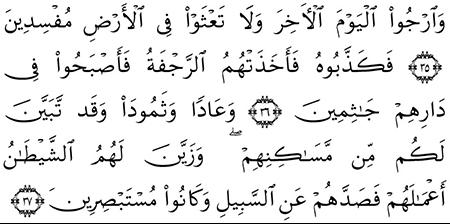 وَٱرْجُوا۟ ٱلْيَوْمَ ٱلْـَٔاخِرَ وَلَا تَعْثَوْا۟ فِى ٱلْأَرْضِ مُفْسِدِينَ
٣٥ فَكَذَّبُوهُ فَأَخَذَتْهُمُ ٱلرَّجْفَةُ فَأَصْبَحُوا۟ فِى
دَارِهِمْ جَـٰثِمِينَ ٣٦ وَعَادًا وَثَمُودَا۟ وَقَد تَّبَيَّنَ
لَكُم مِّن مَّسَـٰكِنِهِمْ ۖ وَزَيَّنَ لَهُمُ ٱلشَّيْطَـٰنُ
أَعْمَـٰلَهُمْ فَصَدَّهُمْ عَنِ ٱلسَّبِيلِ وَكَانُوا۟ مُسْتَبْصِرِينَ ٣٧